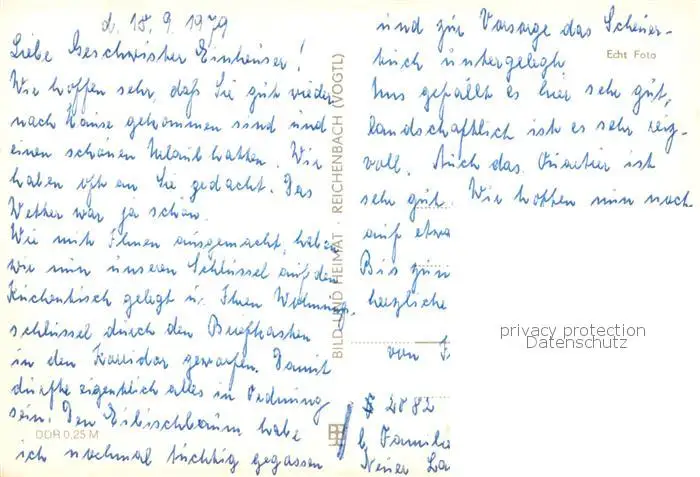 d. 18. 9. 1979
Liebe Geschwister Einhenser!
Wir hoffen sehr, daß Sie gut wieder
nach Hause gekommen sind und
einen schönen Urlaub hatten. Wir
haben oft an Sie gedacht. Das
Wetter war ja schön.
Wie mit Ihnen ausgemacht, haben
wir nun unseren Schlüssel auf den
Küchentisch gelegt u. Ihren Wohnungs-
schlüssel durch den Briefkasten
in den Korridor geworfen. Damit
dürfte eigentlich alles in Ordnung
sein. Den Eibischbaum habe
ich nochmal tüchtig gegossen
DDR 0,25 M
BILD UND HEIMAT · REICHENBACH (VOGTL)
und zur Vorsorge das Scheuer-
tuch untergelegt.
Echt Foto
Uns gefällt es hier sehr gut,
landschaftlich ist es sehr reiz-
voll. Auch das Quartier ist
sehr gut. Wir hoffen nun noch
auf etwa
Bis zum
herzliche
von F
2882
b. Familie
Neuer La
privacy protection
Datenschutz